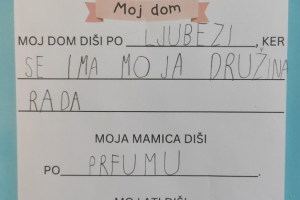 Moj dom
MOJ DOM DIŠI PO LJUBEZI, KER
SE IMA MOJA DRUŽINA
RADA
MOJA MAMICA DIŠI
PO PRFUMU.
MOJ ATI DIŠI